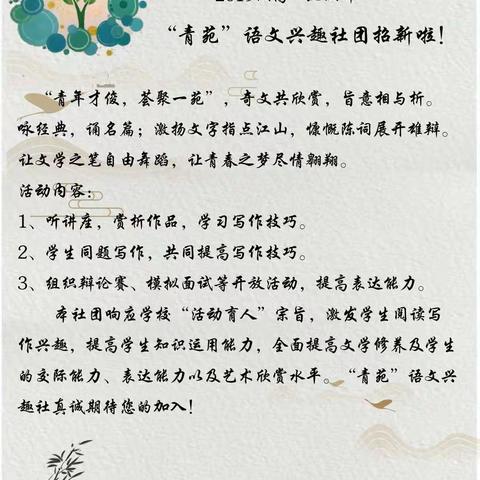 “青苑”语文兴趣社团招新啦！
“青年才俊，荟聚一苑”，奇文共欣赏，旨意相与析。
咏经典，诵名篇；激扬文字指点江山，慷慨陈词展开雄辩。
让文学之笔自由舞蹈，让青春之梦尽情翱翔。
活动内容：
1、听讲座，赏析作品，学习写作技巧。
2、学生同题写作，共同提高写作技巧。
3、组织辩论赛、模拟面试等开放活动，提高表达能力。
本社团响应学校“活动育人”宗旨，激发学生阅读写
作兴趣，提高学生知识运用能力，全面提高文学修养及学生
的交际能力、表达能力以及艺术欣赏水平。“青苑”语文兴
趣社真诚期待您的加入！